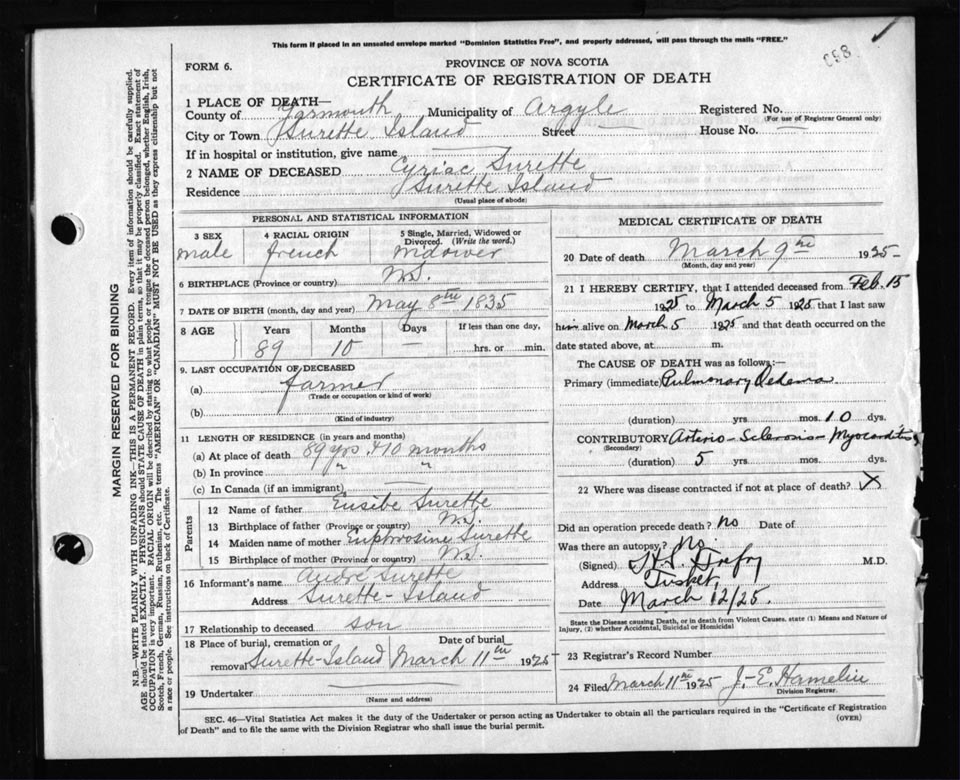 This form if placed in an unsealed envelope marked "Dominion Statistics Free", and properly addressed, will pass through the mails "FREE."
893
FORM 6.
PROVINCE OF NOVA SCOTIA
CERTIFICATE OF REGISTRATION OF DEATH
1 PLACE OF DEATH—
County of Yarmouth Municipality of Argyle Registered No.
(For use of Registrar General only)
City or Town Surette Island Street — House No. —
If in hospital or institution, give name —
2 NAME OF DECEASED Cyriac Surette
Residence Surette Island
(Usual place of abode)
PERSONAL AND STATISTICAL INFORMATION
3 SEX 4 RACIAL ORIGIN 5 Single, Married, Widowed or Divorced. (Write the word.)
male french widower
6 BIRTHPLACE (Province or country) N.S.
7 DATE OF BIRTH (month, day and year) May 8th 1835
8 AGE Years Months Days If less than one day,
89 10 — hrs. or min.
9. LAST OCCUPATION OF DECEASED
(a) farmer
(Trade or occupation or kind of work)
(b)
(Kind of industry)
11 LENGTH OF RESIDENCE (in years and months)
(a) At place of death 89 yrs + 10 months
(b) In province " "
(c) In Canada (if an immigrant) —
Parents
12 Name of father Eusibe Surette
13 Birthplace of father (Province or country) N.S.
14 Maiden name of mother Euphrosine Surette
15 Birthplace of mother (Province or country) N.S.
16 Informant's name André Surette
Address Surette-Island
17 Relationship to deceased son
18 Place of burial, cremation or removal Surette-Island Date of burial March 11th 1925
19 Undertaker —
(Name and address)
MEDICAL CERTIFICATE OF DEATH
20 Date of death March 9th 1925
(Month, day and year)
21 I HEREBY CERTIFY, that I attended deceased from Feb. 15
1925 to March 5 1925 that I last saw
him alive on March 5 1925 and that death occurred on the
date stated above, at m.
The CAUSE OF DEATH was as follows:—
Primary (immediate) Pulmonary Oedema
(duration) yrs mos. 10 dys.
CONTRIBUTORY Arterio-Sclerosis- Myocarditis
(Secondary)
(duration) 5 yrs mos. dys.
22 Where was disease contracted if not at place of death? X
Did an operation precede death? no Date of
Was there an autopsy? No.
(Signed) M.D.
Address Tusket,
Date March 12/25.
State the Disease causing Death, or in death from Violent Causes, state (1) Means and Nature of Injury, (2) whether Accidental, Suicidal or Homicidal
23 Registrar's Record Number
24 Filed March 11th 1925 J.-E. Hamelin
Division Registrar.
SEC. 46—Vital Statistics Act makes it the duty of the Undertaker or person acting as Undertaker to obtain all the particulars required in the "Certificate of Registration of Death" and to file the same with the Division Registrar who shall issue the burial permit.
(OVER)
MARGIN RESERVED FOR BINDING
N.B.—WRITE PLAINLY WITH UNFADING INK—THIS IS A PERMANENT RECORD. Every item of information should be carefully supplied.
AGE should be stated EXACTLY. PHYSICIANS should STATE CAUSE OF DEATH in plain terms, so that it may be properly classified. Exact statement of
OCCUPATION is very important. RACIAL ORIGIN will be described by stating to what people or tongue the deceased person belonged, whether English, Irish,
Scotch, French, German, Russian, Ruthenian, etc. The terms "AMERICAN" OR "CANADIAN" MUST NOT BE USED as they express citizenship but not
a race or people. See instructions on back of Certificate.